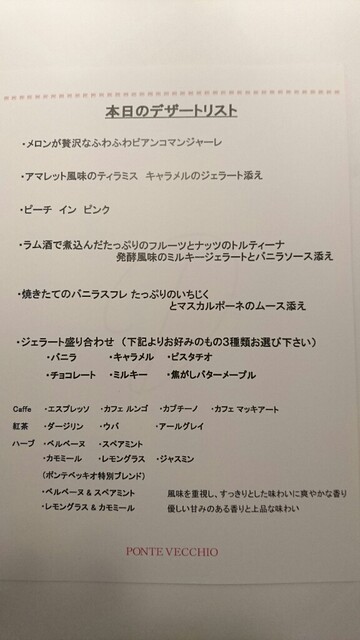 本日のデザートリスト
・メロンが贅沢なふわふわビアンコマンジャーレ
・アマレット風味のティラミス キャラメルのジェラート添え
・ピーチ イン ピンク
・ラム酒で煮込んだたっぷりのフルーツとナッツのトルティーナ
発酵風味のミルキージェラートとバニラソース添え
・焼きたてのバニラスフレ たっぷりのいちじく
とマスカルポーネのムース添え
・ジェラート盛り合わせ (下記よりお好みのもの3種類お選び下さい)
・バニラ ・キャラメル ・ピスタチオ
・チョコレート ・ミルキー ・焦がしバターメープル
Caffe ・エスプレッソ ・カフェ ルンゴ ・カプチーノ ・カフェ マッキアート
紅茶 ・ダージリン ・ウバ ・アールグレイ
ハーブ ・ベルベーヌ ・スペアミント
・カモミール ・レモングラス ・ジャスミン
(ポンテベッキオ特別ブレンド)
・ベルベーヌ & スペアミント 風味を重視し、すっきりとした味わいに爽やかな香り
・レモングラス & カモミール 優しい甘みのある香りと上品な味わい
PONTE VECCHIO